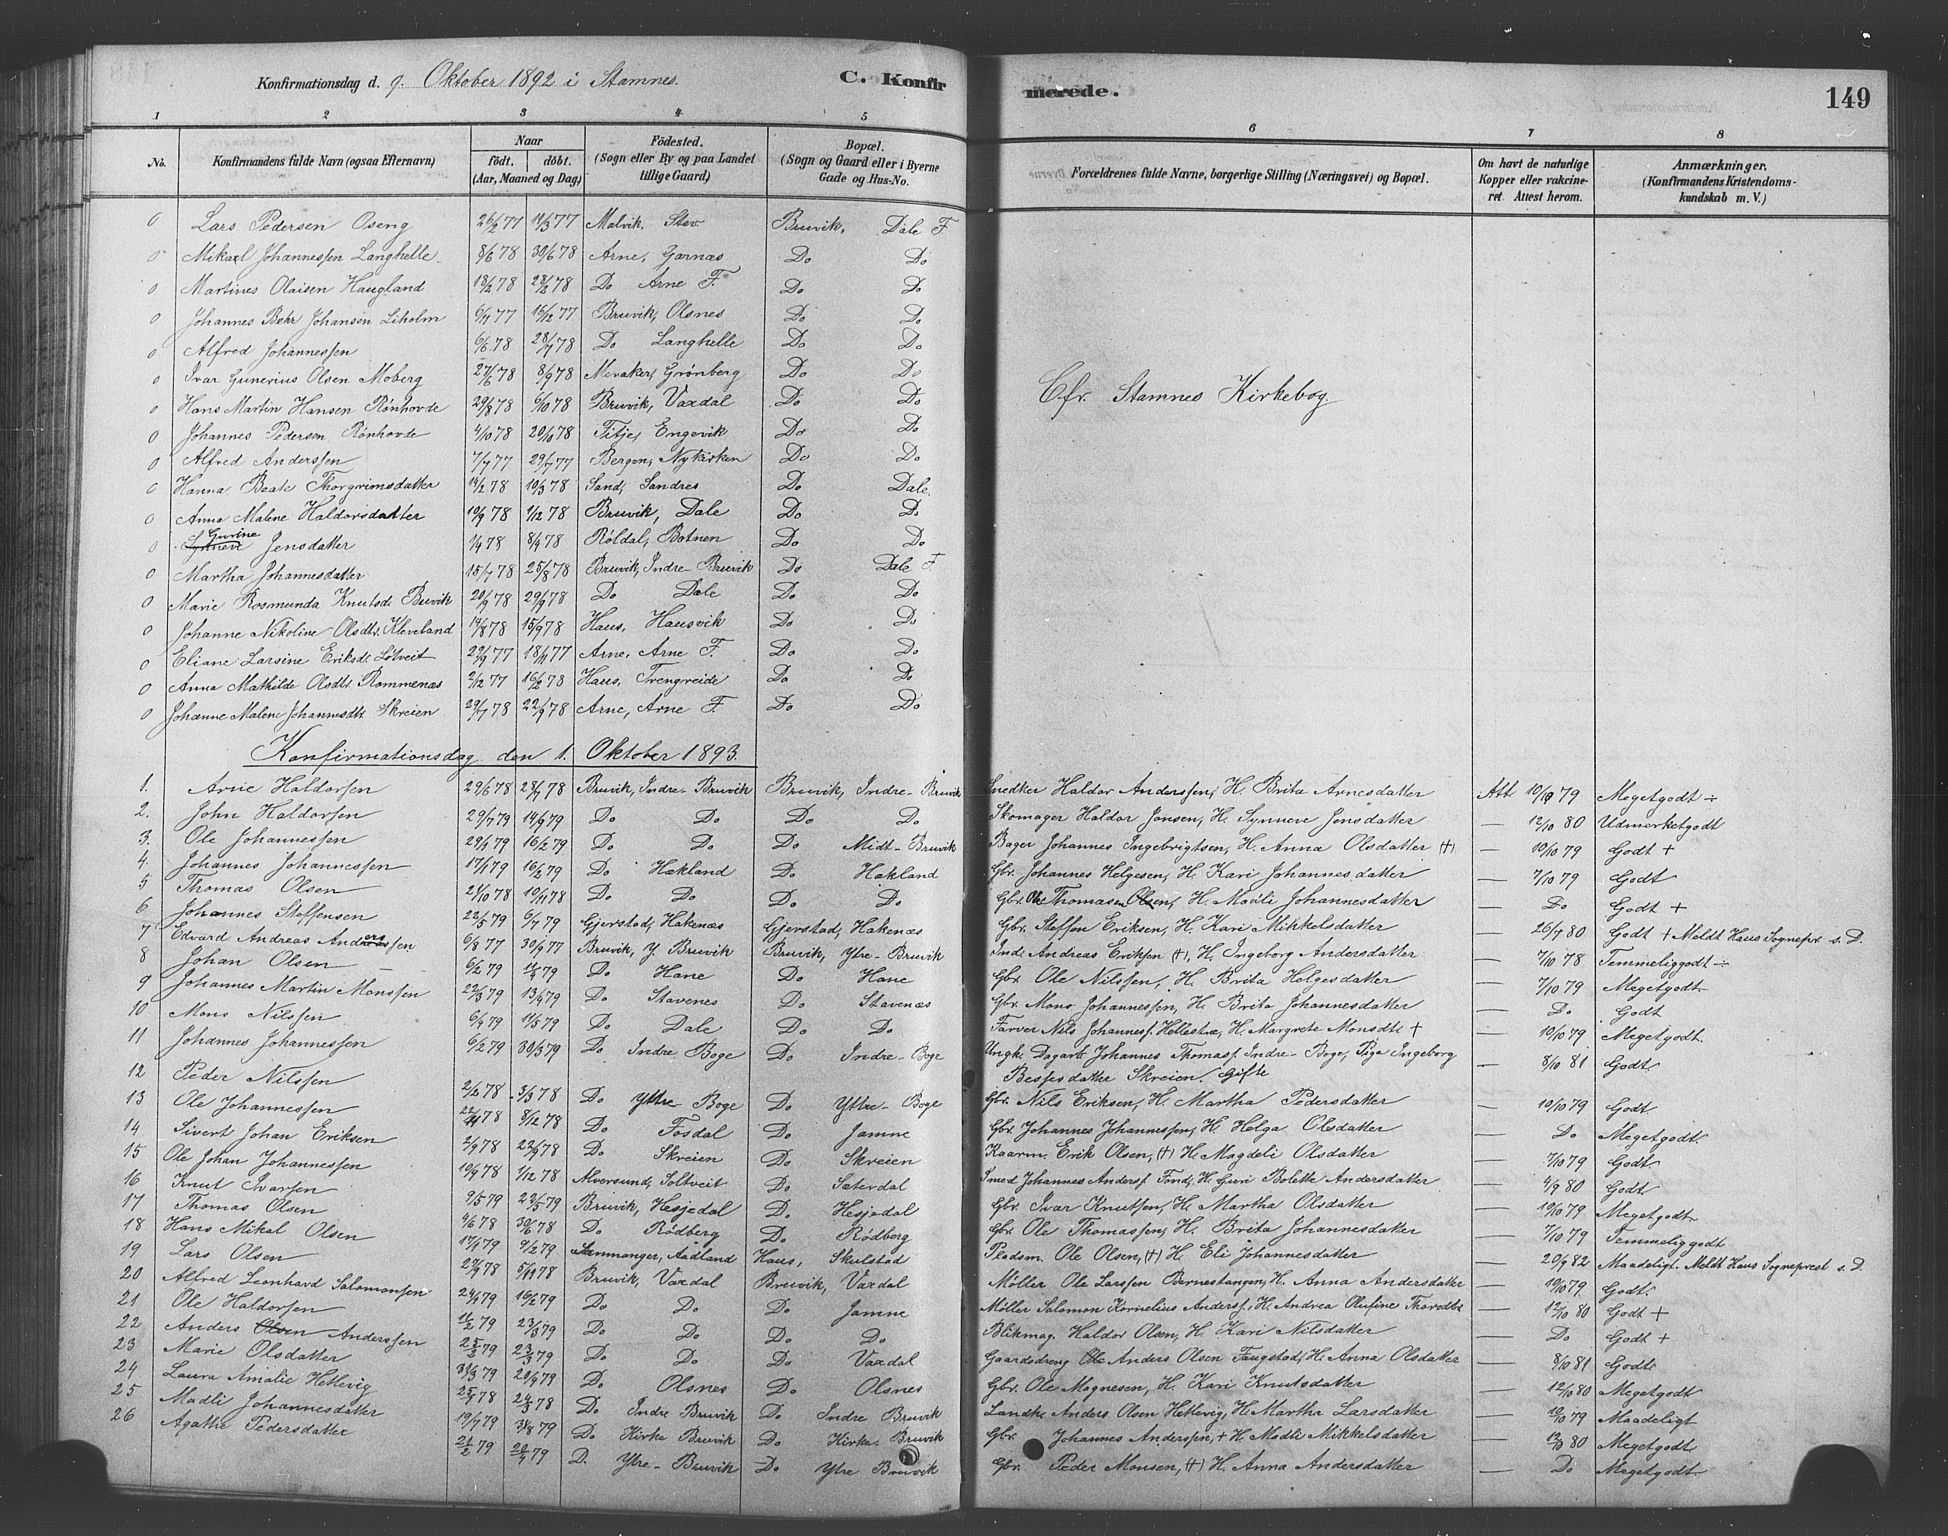 Konfirmationsdag d. 9. Oktober 1892 i Stamnes. C. Konfir merede. 149
1 2 3 4 5 6 7 8
No. Konfirmandens fulde Navn (ogsaa Efternavn) Naar født. døbt. (Aar, Maaned og Dag) Fødested. (Sogn eller By og paa Landet tillige Gaard) Bopæl. (Sogn og Gaard eller i Byerne Gade og Hus-No. Forældrenes fulde Navne, borgerlige Stilling (Næringsvei) og Bopæl. Om havt de naturlige Kopper eller vakcineret. Attest herom. Anmærkninger. (Konfirmandens Kristendomskundskab m. V.)
0 Lars Pedersen Oseng 26/2 77 Malvik, Bruvik, Dale F
0 Mikael Johannessen Langhelle 8/6 78 30/6 78 Arne, Garnæs Do Do
0 Martines Olaisen Haugland 78 78 Do Arne F. Do Do
0 Johannes Behr Johansen Liholm 77 77 Bruvik, Olsnes Do Do
0 Alfred Johannessen 6/6 78 28/7 78 Do Langhelle Do Do
0 Ivar Gunerius Olsen Moberg 27/6 78 8/9 78 Meraker, Grønberg Do Do
0 Hans Martin Hansen Rønhovde 29/8 78 6/10 78 Bruvik, Vaxdal Do Do
0 Johannes Pedersen Rønhovde 4/10 78 20/10 78 Fitje, Engevik Do Do
0 Alfred Anderssen 7/7 77 29/7 77 Bergen, Nykirken Do Do
0 Hanna Beate Thorgrimsdatter 14/2 78 10/3 78 Sand, Sandres Do Dale.
0 Anna Malene Haldorsdatter 10/9 78 1/12 78 Bruvik, Dale Do Do
0 Synneve Gurine Jensdatter 1/4 78 8/4 78 Røldal, Botnen Do Do
0 Martha Johannesdatter 15/7 78 25/8 78 Bruvik, Indre-Bruvik Do Dale F
0 Marie Rosmunda Knutsd. Bruvik 20/9 78 29/9 78 Do Dale Do Do
0 Johanne Nikoline Olsdtr. Kleveland 14/8 78 15/9 78 Haus, Hausvik Do Do
0 Eliane Larsine Eriksdt. Løtveit 22/9 77 18/11 77 Arne, Arne F. Do Do
0 Anna Mathilde Olsdtr Rommenæs 2/12 77 16/2 78 Haus, Trengreide Do Do
0 Johanne Malene Johannesdt. Skreien 29/7 78 22/9 78 Arne, Arne F. Do Do
Cfr. Stamnes Kirkebog.
Konfirmationsdag den 1. Oktober 1893.
1. Arne Haldorsen 29/6 78 28/7 78 Bruvik, Indre-Bruvik Bruvik, Indre-Bruvik Snedker Haldor Anderssen, H. Brita Arnesdatter Att. 79 Megetgodt ÷
2. John Haldorsen 29/7 79 14/9 79 Do Do Do Do Skomager Haldor Jonsen, H. Synneve Jonsdatter — 12/10 80 Udmerketgodt
3. Ole Johannessen 29/1 79 16/2 79 Do Do Do Midt-Bruvik Bager Johannes Ingebrigtsen, H. Anna Olsdatter (†) — 10/10 79 Godt +
4. Johannes Johannessen 17/1 79 16/2 79 Do Hækland Do Hækland Gbr. Johannes Helgesen, H. Kari Johannesdatter — 7/10 79 Godt
5 Thomas Olsen 21/10 78 10/11 78 Do Do Do Do Gbr. Ole Thomasen Olsen, H. Madli Johannesdatter — Do Godt +
6 Johannes Steffensen 22/5 79 6/7 79 Gjerstad, Hakenæs Gjerstad, Hakenæs Gbr. Steffen Eriksen, H. Kari Mikkelsdatter — 26/7 80 Godt + Meldt Haus Sognepr. s. D.
7 Edvard Andreas Anderssen 6/8 77 30/9 77 Bruvik, Y. Bruvik Bruvik, Ytre-Bruvik Ind. Andreas Eriksen (†), H. Ingeborg Andersdatter — 7/10 78 Temmeliggodt ÷
8 Johan Olsen 6/2 79 79 Do Hane Do Hane Gbr. Ole Nilssen, H. Brita Helgesdatter — 7/10 79 Megetgodt
9 Johannes Martin Monssen 22/3 79 13/4 79 Do Stavenes Do Stavenæs Gbr. Mons Johannessen, H. Brita Johannesdatter — Do Godt
10 Mons Nilssen 6/4 79 11/5 79 Do Dale Do Do Farver Nils Johanness. Hellestræ, H. Margrete Monsdtr † — 10/10 79 Megetgodt.
11 Johannes Johannessen 6/2 79 30/3 79 Do Indre Boge Do Indre-Boge Ungk. Dagarb. Johannes Thomass. Indre-Boge, Pige Ingeborg — 8/10 81 Godt.
Skreien. Gifte
12 Peder Nilssen 2/2 78 3/3 78 Do Ytre Boge Do Ytre-Boge Gbr. Nils Eriksen, H. Martha Pedersdatter — 10/10 79 Godt
13 Ole Johannessen 78 8/12 78 Do Fosdal Do Jamne Gbr. Johannes Johannessen, H. Helga Olsdatter — Do Megetgodt
14 Sivert Johan Eriksen 2/9 78 22/9 78 Do Skreien Do Skreien Kaarm. Erik Olsen, (†) H. Magdeli Olsdatter — 7/10 79 Godt
15 Ole Johan Johannessen 78 1/12 78 Alversund, Soltveit Do Sæterdal Smed Johannes Anderss. Tond, H. Guri Bolette Andersdatter — 4/9 80 Godt
16 Knut Ivarsen 9/5 79 22/5 79 Bruvik, Hesjedal Do Hesjedal Gbr. Ivar Knutsen, H. Martha Olsdatter — 10/10 79 Megetgodt
17 Thomas Olsen 4/6 78 30/6 78 Do Rødberg Do Rødberg Gbr. Ole Thomassen, H. Brita Johannesdatter — 7/10 79 Temmeliggodt
18 Hans Mikal Olsen 17/1 79 9/2 79 Samnanger, Aadland Haus, Skulstad Pladsm. Ole Olsen, (†) H. Eli Johannesdatter — 20/9 82 Maadeligt. Meldt Haus Sogneprest s. D.
19 Lars Olsen 27/9 78 5/11 78 Bruvik, Vaxdal Bruvik, Vaxdal Møller Ole Larssen Bernestangen, H. Anna Andersdatter — 10/10 79 Godt.
20 Alfred Leonhard Salomonsen 24/1 79 16/2 79 Do Do Do Jamne Møller Salomon Kornelius Anderss. H. Andrea Olufine Thorsdtr — 12/10 80 Godt +
21 Ole Haldorsen 11/2 79 23/3 79 Do Do Do Do Blikmag. Haldor Olsen, H. Kari Nilsdatter — Do Godt +
22 Anders Olsen Anderssen 79 79 Do Do Do Vaxdal Gaardsdreng Ole Anders Olsen Faugstad, H. Anna Olsdatter — 8/10 81 Godt
23 Marie Olsdatter 31/3 79 20/4 79 Do Olsnes Do Olsnes Gbr. Ole Magnesen, H. Kari Knutsdatter — 12/10 80 Megetgodt
24 Laura Amalie Hetlevig 78 78 Do Indre Bruvik Do Indre Bruvik Landhr. Anders Olsen Hetlevig, H. Martha Larsdatter — 79 Maadeligt
25 Madli Johannesdatter 79 31/8 79 Do Kirke Bruvik Do Kirke-Bruvik Gbr. Johannes Anderssen, † H. Madli Mikkelsdatter — 80 Megetgodt
26 Agathe Pedersdatter 79 79 D. Ytre-Bruvik Do Ytre Bruvik Gbr. Peder Monsen, (†) H. Anna Andersdatter — Do Megetgodt